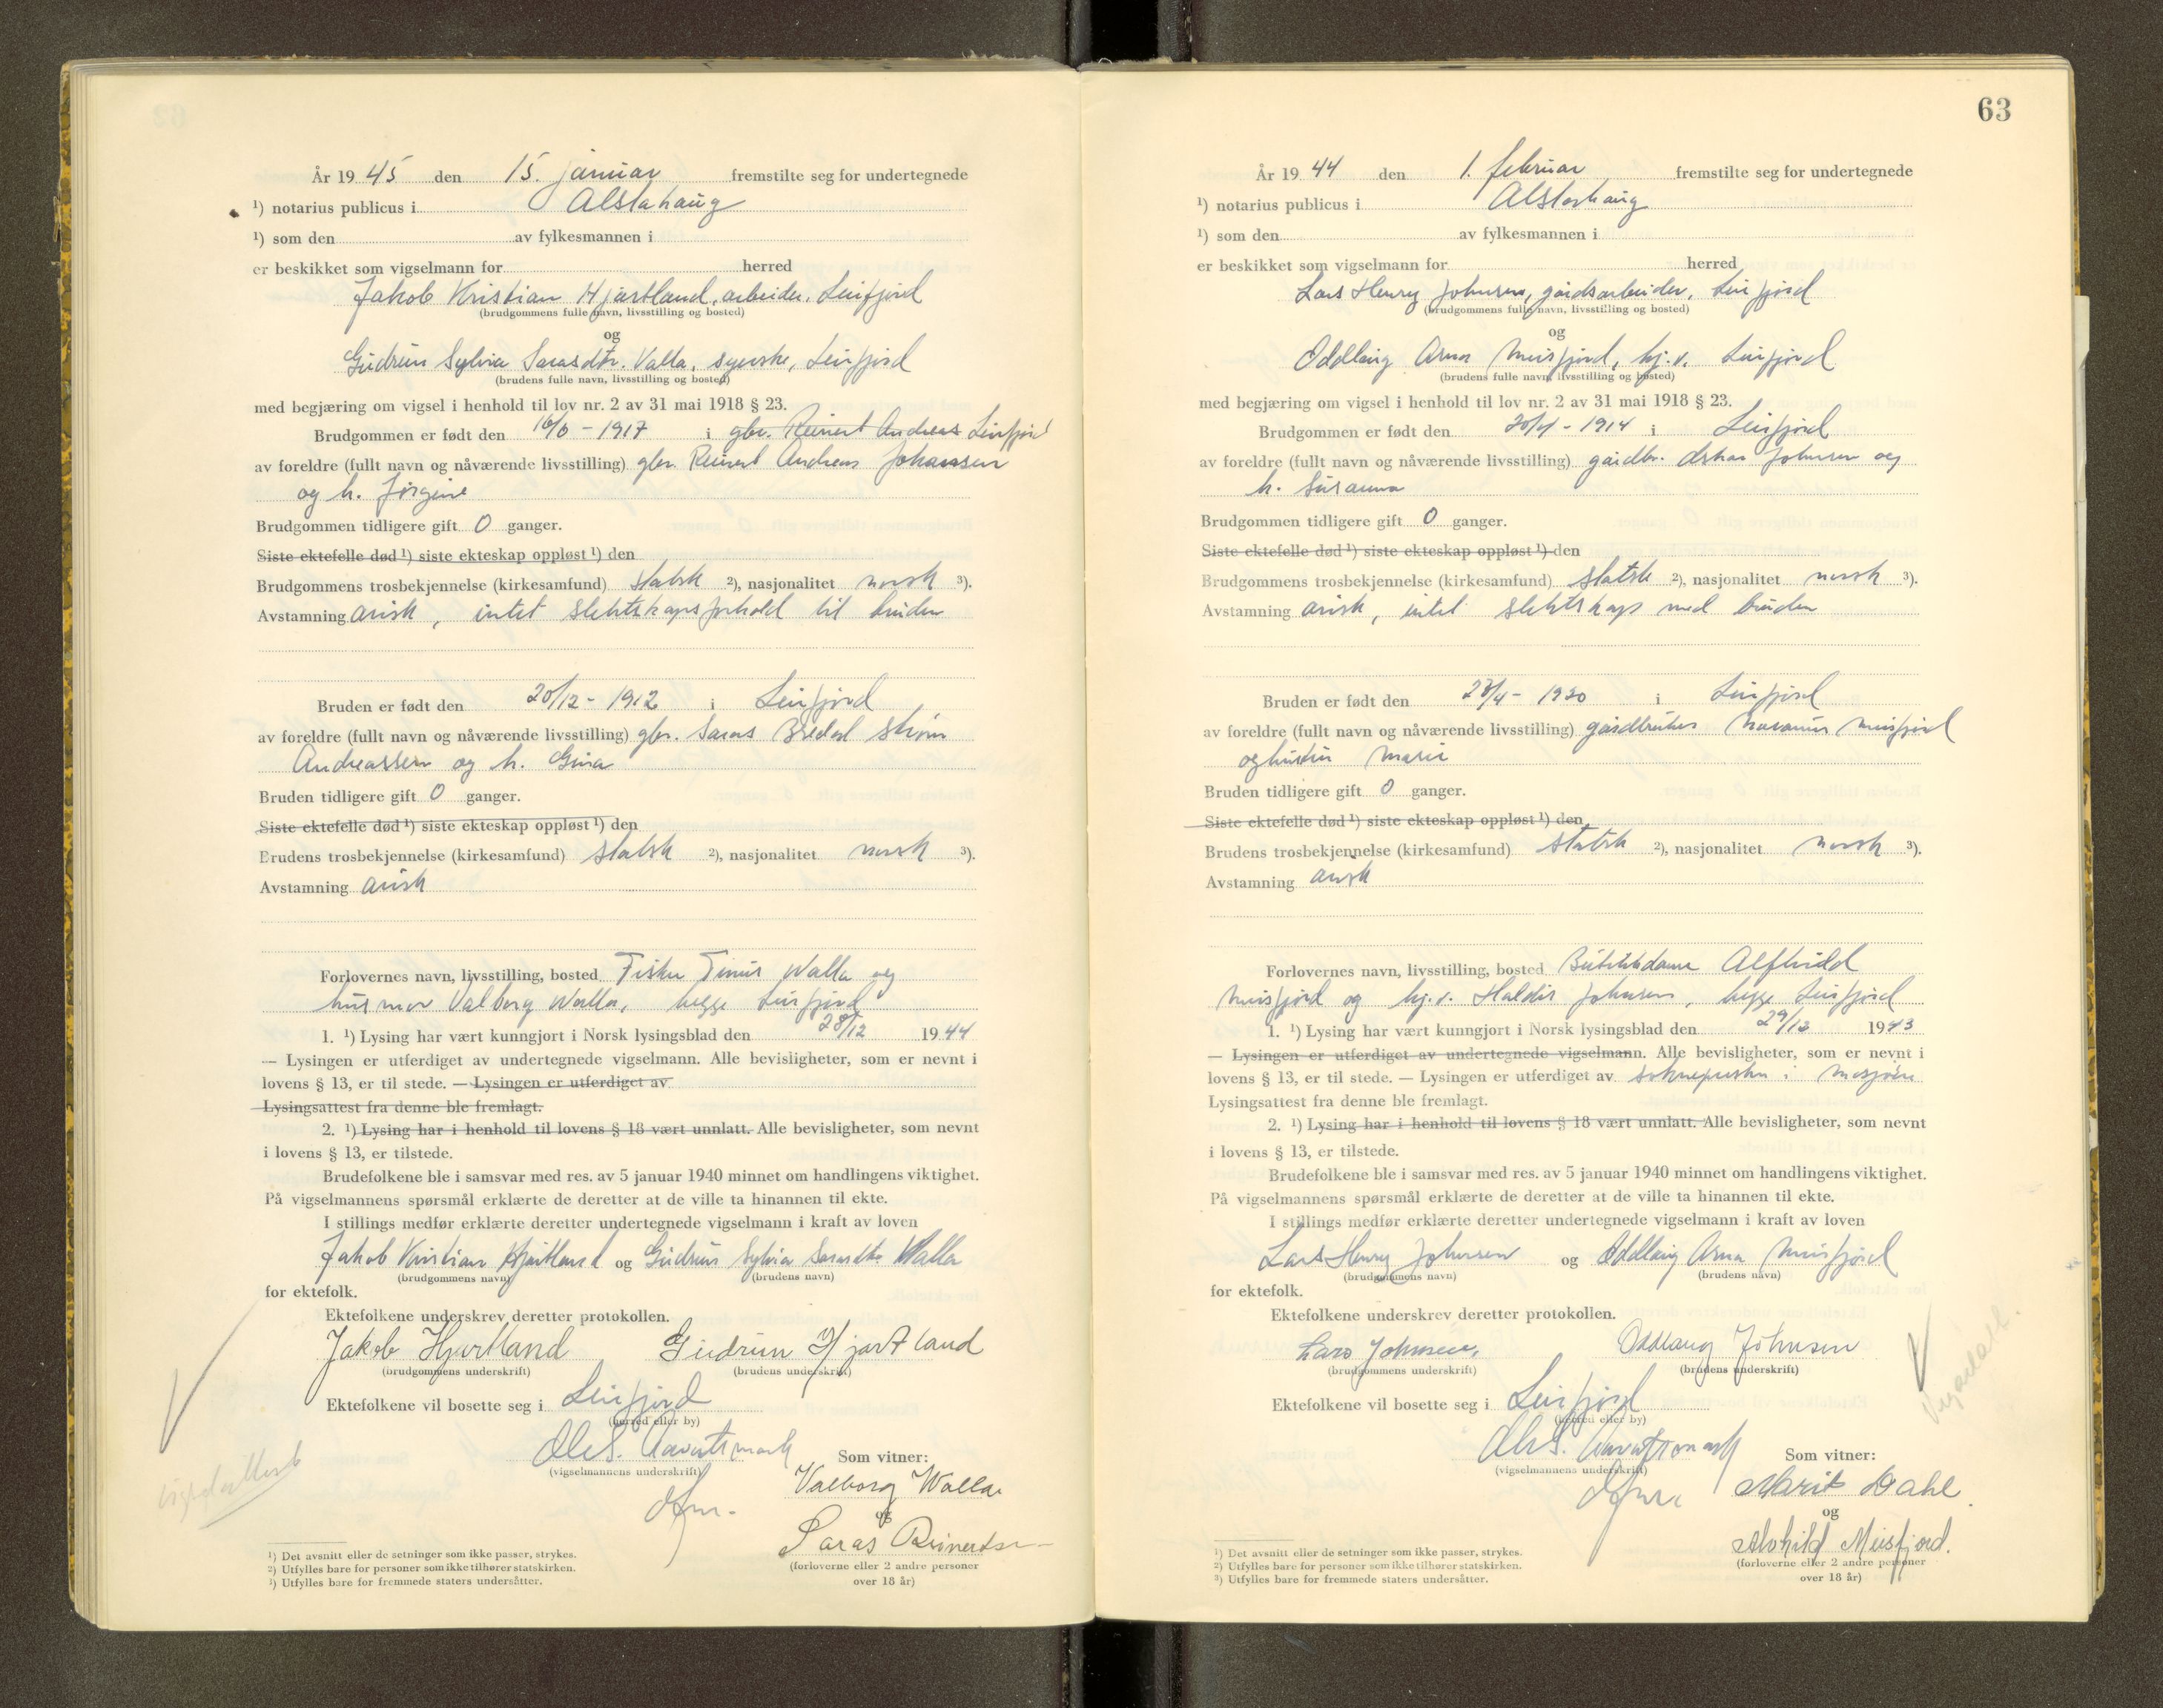 År 1945 den 15. januar fremstilte seg for undertegnede
¹) notarius publicus i Alstahaug
¹) som den av fylkesmannen i
er beskikket som vigselmann for herred
Jakob Kristian Hjartland, arbeider, Leirfjord
(brudgommens fulle navn, livsstilling og bosted)
og
Gudrun Sylvia Sarasdtr. Valla, syerske, Leirfjord
(brudens fulle navn, livsstilling og bosted)
med begjæring om vigsel i henhold til lov nr. 2 av 31 mai 1918 § 23.
Brudgommen er født den 1917 i gbr. Reinert Andreas Leirfjord
av foreldre (fullt navn og nåværende livsstilling) gbr. Reinert Andreas Johansen
og h. Jørgine
Brudgommen tidligere gift 0 ganger.
Siste ektefelle død ¹) siste ekteskap oppløst ¹) den
Brudgommens trosbekjennelse (kirkesamfund) statsk ²), nasjonalitet norsk ³).
Avstamning arisk, intet slektskapsforhold til bruden
Bruden er født den 20/12 - 1912 i Leirfjord
av foreldre (fullt navn og nåværende livsstilling) gbr. Saras Bredal Strøm
Andreassen og h. Gina
Bruden tidligere gift 0 ganger.
Siste ektefelle død ¹) siste ekteskap oppløst ¹) den
Brudens trosbekjennelse (kirkesamfund) statsk ²), nasjonalitet norsk ³).
Avstamning arisk
Forlovernes navn, livsstilling, bosted Fisker Tinus Walla og
husmor Valborg Walla, begge Leirfjord
1. ¹) Lysing har vært kunngjort i Norsk lysingsblad den 28/12 1944
— Lysingen er utferdiget av undertegnede vigselmann. Alle bevisligheter, som er nevnt i
lovens § 13, er til stede. — Lysingen er utferdiget av
Lysingsattest fra denne ble fremlagt.
2. ¹) Lysing har i henhold til lovens § 18 vært unnlatt. Alle bevisligheter, som nevnt
i lovens § 13, er tilstede.
Brudefolkene ble i samsvar med res. av 5 januar 1940 minnet om handlingens viktighet.
På vigselmannens spørsmål erklærte de deretter at de ville ta hinannen til ekte.
I stillings medfør erklærte deretter undertegnede vigselmann i kraft av loven
Jakob Kristian Hjartland og Gudrun Sylvia Sarasdtr Walla
(brudgommens navn) (brudens navn)
for ektefolk.
Ektefolkene underskrev deretter protokollen.
Jakob Hjartland Gudrun Hjartland
(brudgommens underskrift) (brudens underskrift)
Ektefolkene vil bosette seg i Leirfjord
(herred eller by)
(vigselmannens underskrift)
Som vitner:
Valborg Walla
og
Saras Reinertsen
(forloverne eller 2 andre personer
over 18 år)
vigselattest
¹) Det avsnitt eller de setninger som ikke passer, strykes.
²) Utfylles bare for personer som ikke tilhører statskirken.
³) Utfylles bare for fremmede staters undersåtter.
63
År 1944 den 1. februar fremstilte seg for undertegnede
¹) notarius publicus i Alstahaug
¹) som den av fylkesmannen i
er beskikket som vigselmann for herred
Lars Henry Johnsen, gårdsarbeider, Leirfjord
(brudgommens fulle navn, livsstilling og bosted)
og
Oddlaug Arna Meisfjord, hj.v. Leirfjord
(brudens fulle navn, livsstilling og bosted)
med begjæring om vigsel i henhold til lov nr. 2 av 31 mai 1918 § 23.
Brudgommen er født den 1914 i Leirfjord
av foreldre (fullt navn og nåværende livsstilling) gårdbr. Oskar Johnsen og
h. Susanna
Brudgommen tidligere gift 0 ganger.
Siste ektefelle død ¹) siste ekteskap oppløst ¹) den
Brudgommens trosbekjennelse (kirkesamfund) statsk ²), nasjonalitet norsk ³).
Avstamning arisk, intet slektskaps med bruden
Bruden er født den 1920 i Leirfjord
av foreldre (fullt navn og nåværende livsstilling) gårdbruker Meisfjord
og hustru Marie
Bruden tidligere gift 0 ganger.
Siste ektefelle død ¹) siste ekteskap oppløst ¹) den
Brudens trosbekjennelse (kirkesamfund) statsk ²), nasjonalitet norsk ³).
Avstamning arisk
Forlovernes navn, livsstilling, bosted Butikkdame Alfhild
Meisfjord og hj.v. Haldis Johnsen, begge Leirfjord
1. ¹) Lysing har vært kunngjort i Norsk lysingsblad den 29/12 1943
— Lysingen er utferdiget av undertegnede vigselmann. Alle bevisligheter, som er nevnt i
lovens § 13, er til stede. — Lysingen er utferdiget av soknepresten i Mosjøen
Lysingsattest fra denne ble fremlagt.
2. ¹) Lysing har i henhold til lovens § 18 vært unnlatt. Alle bevisligheter, som nevnt
i lovens § 13, er tilstede.
Brudefolkene ble i samsvar med res. av 5 januar 1940 minnet om handlingens viktighet.
På vigselmannens spørsmål erklærte de deretter at de ville ta hinannen til ekte.
I stillings medfør erklærte deretter undertegnede vigselmann i kraft av loven
Lars Henry Johnsen og Oddlaug Arna Meisfjord
(brudgommens navn) (brudens navn)
for ektefolk.
Ektefolkene underskrev deretter protokollen.
Lars Johnsen, Oddlaug Johnsen
(brudgommens underskrift) (brudens underskrift)
Ektefolkene vil bosette seg i Leirfjord
(herred eller by)
(vigselmannens underskrift)
Som vitner:
Marit Dahl
og
Alvhild Meisfjord.
(forloverne eller 2 andre personer
over 18 år)
¹) Det avsnitt eller de setninger som ikke passer, strykes.
²) Utfylles bare for personer som ikke tilhører statskirken.
³) Utfylles bare for fremmede staters undersåtter.